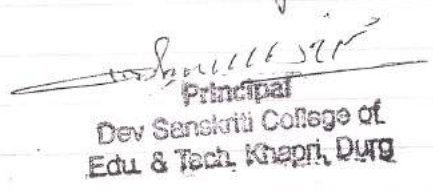 Principal
Dev Sanskriti College of
Edu. & Tech. Khapri, Durg